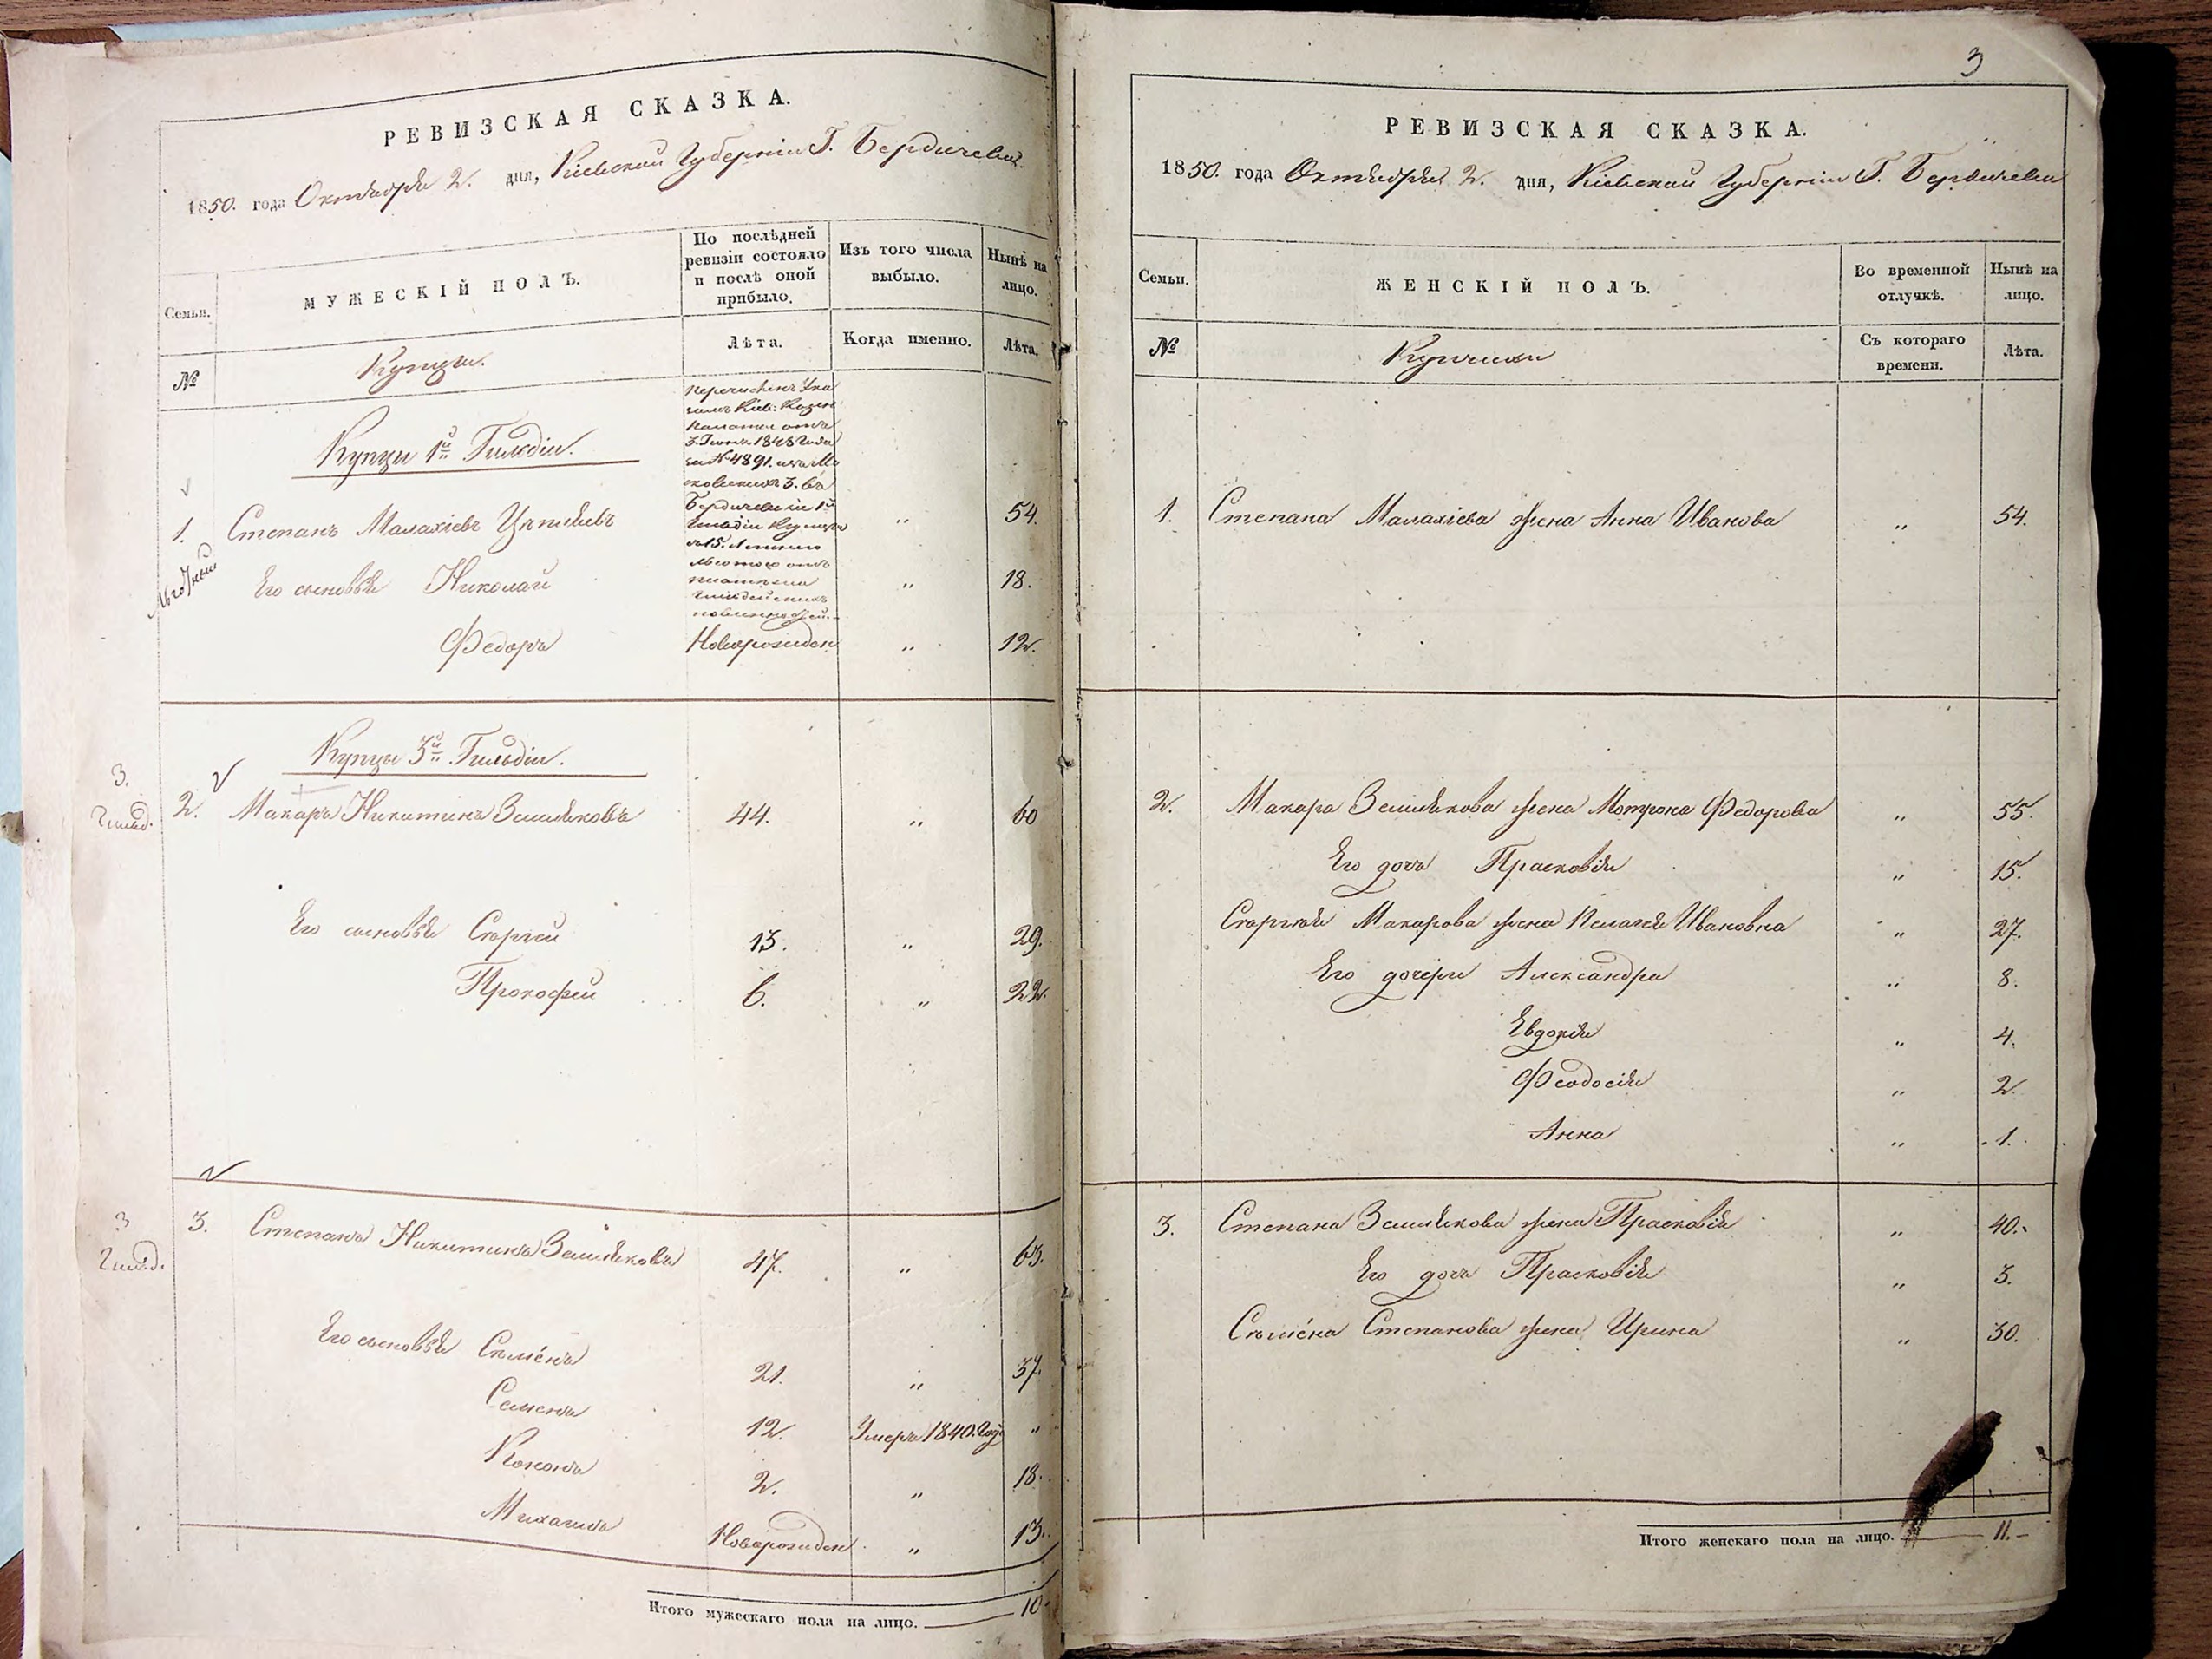 РЕВИЗСКАЯ СКАЗКА.
1850. года Октября 2. дня, Кіевской Губерніи Г. Бердичева
Семьи.
МУЖЕСКІЙ ПОЛЪ.
По послѣдней
ревизіи состояло
и послѣ оной
прибыло.
Изъ того числа
выбыло.
Нынѣ на
лицо.
№
Купцы.
Лѣта.
Когда именно.
Лѣта.
Купцы 1й Гильдіи.
Перечисленъ Ука
зомъ Кіев: Казен
Палаты отъ
3. 1848 Года
за № 4891. изъ
3. въ
Бердичевскіе 1й
Гильдіи Купцы
съ 15.
льготою отъ
платежа
Гильдейскихъ
повинностей.
1. Степанъ Малахіевъ „ 54.
Льготный
Его сыновья Николай „ 18.
Федоръ Новорожден „ 12.
Купцы 3й Гильдіи.
3.
Гильд.
2. Макаръ Никитинъ Земляковъ 44. „ 60
Его сыновья Сергей 13. „ 29.
Прокофей 6. „ 22.
3
Гильд.
3. Степанъ Никитинъ Земляковъ 47. „ 63.
Его сыновья Семёнъ 21. „ 37.
Семенъ 12. Умеръ 1840. Году „
Кононъ 2. „ 18.
Михаилъ Новорожден „ 13.
Итого мужескаго пола на лицо. 10
3
РЕВИЗСКАЯ СКАЗКА.
1850. года Октября 2. дня, Кіевской Губерніи Г. Бердичева
Семьи.
ЖЕНСКІЙ ПОЛЪ.
Во временной
отлучкѣ.
Нынѣ на
лицо.
№
Купчихи
Съ котораго
времени.
Лѣта.
1. Степана Малахіева жена Анна Иванова „ 54.
2. Макара Землякова жена Мотрона Федорова „ 55.
Его дочь Прасковія „ 15.
Сергея Макарова жена Пелагея Ивановна „ 27.
Его дочери Александра „ 8.
Евдокія „ 4.
Феодосія „ 2
Анна „ 1.
3. Степана Землякова жена Прасковія „ 40.
Его дочь Прасковія „ 3.
Семёна Степанова жена Ирина „ 30.
Итого женскаго пола на лицо. 11.